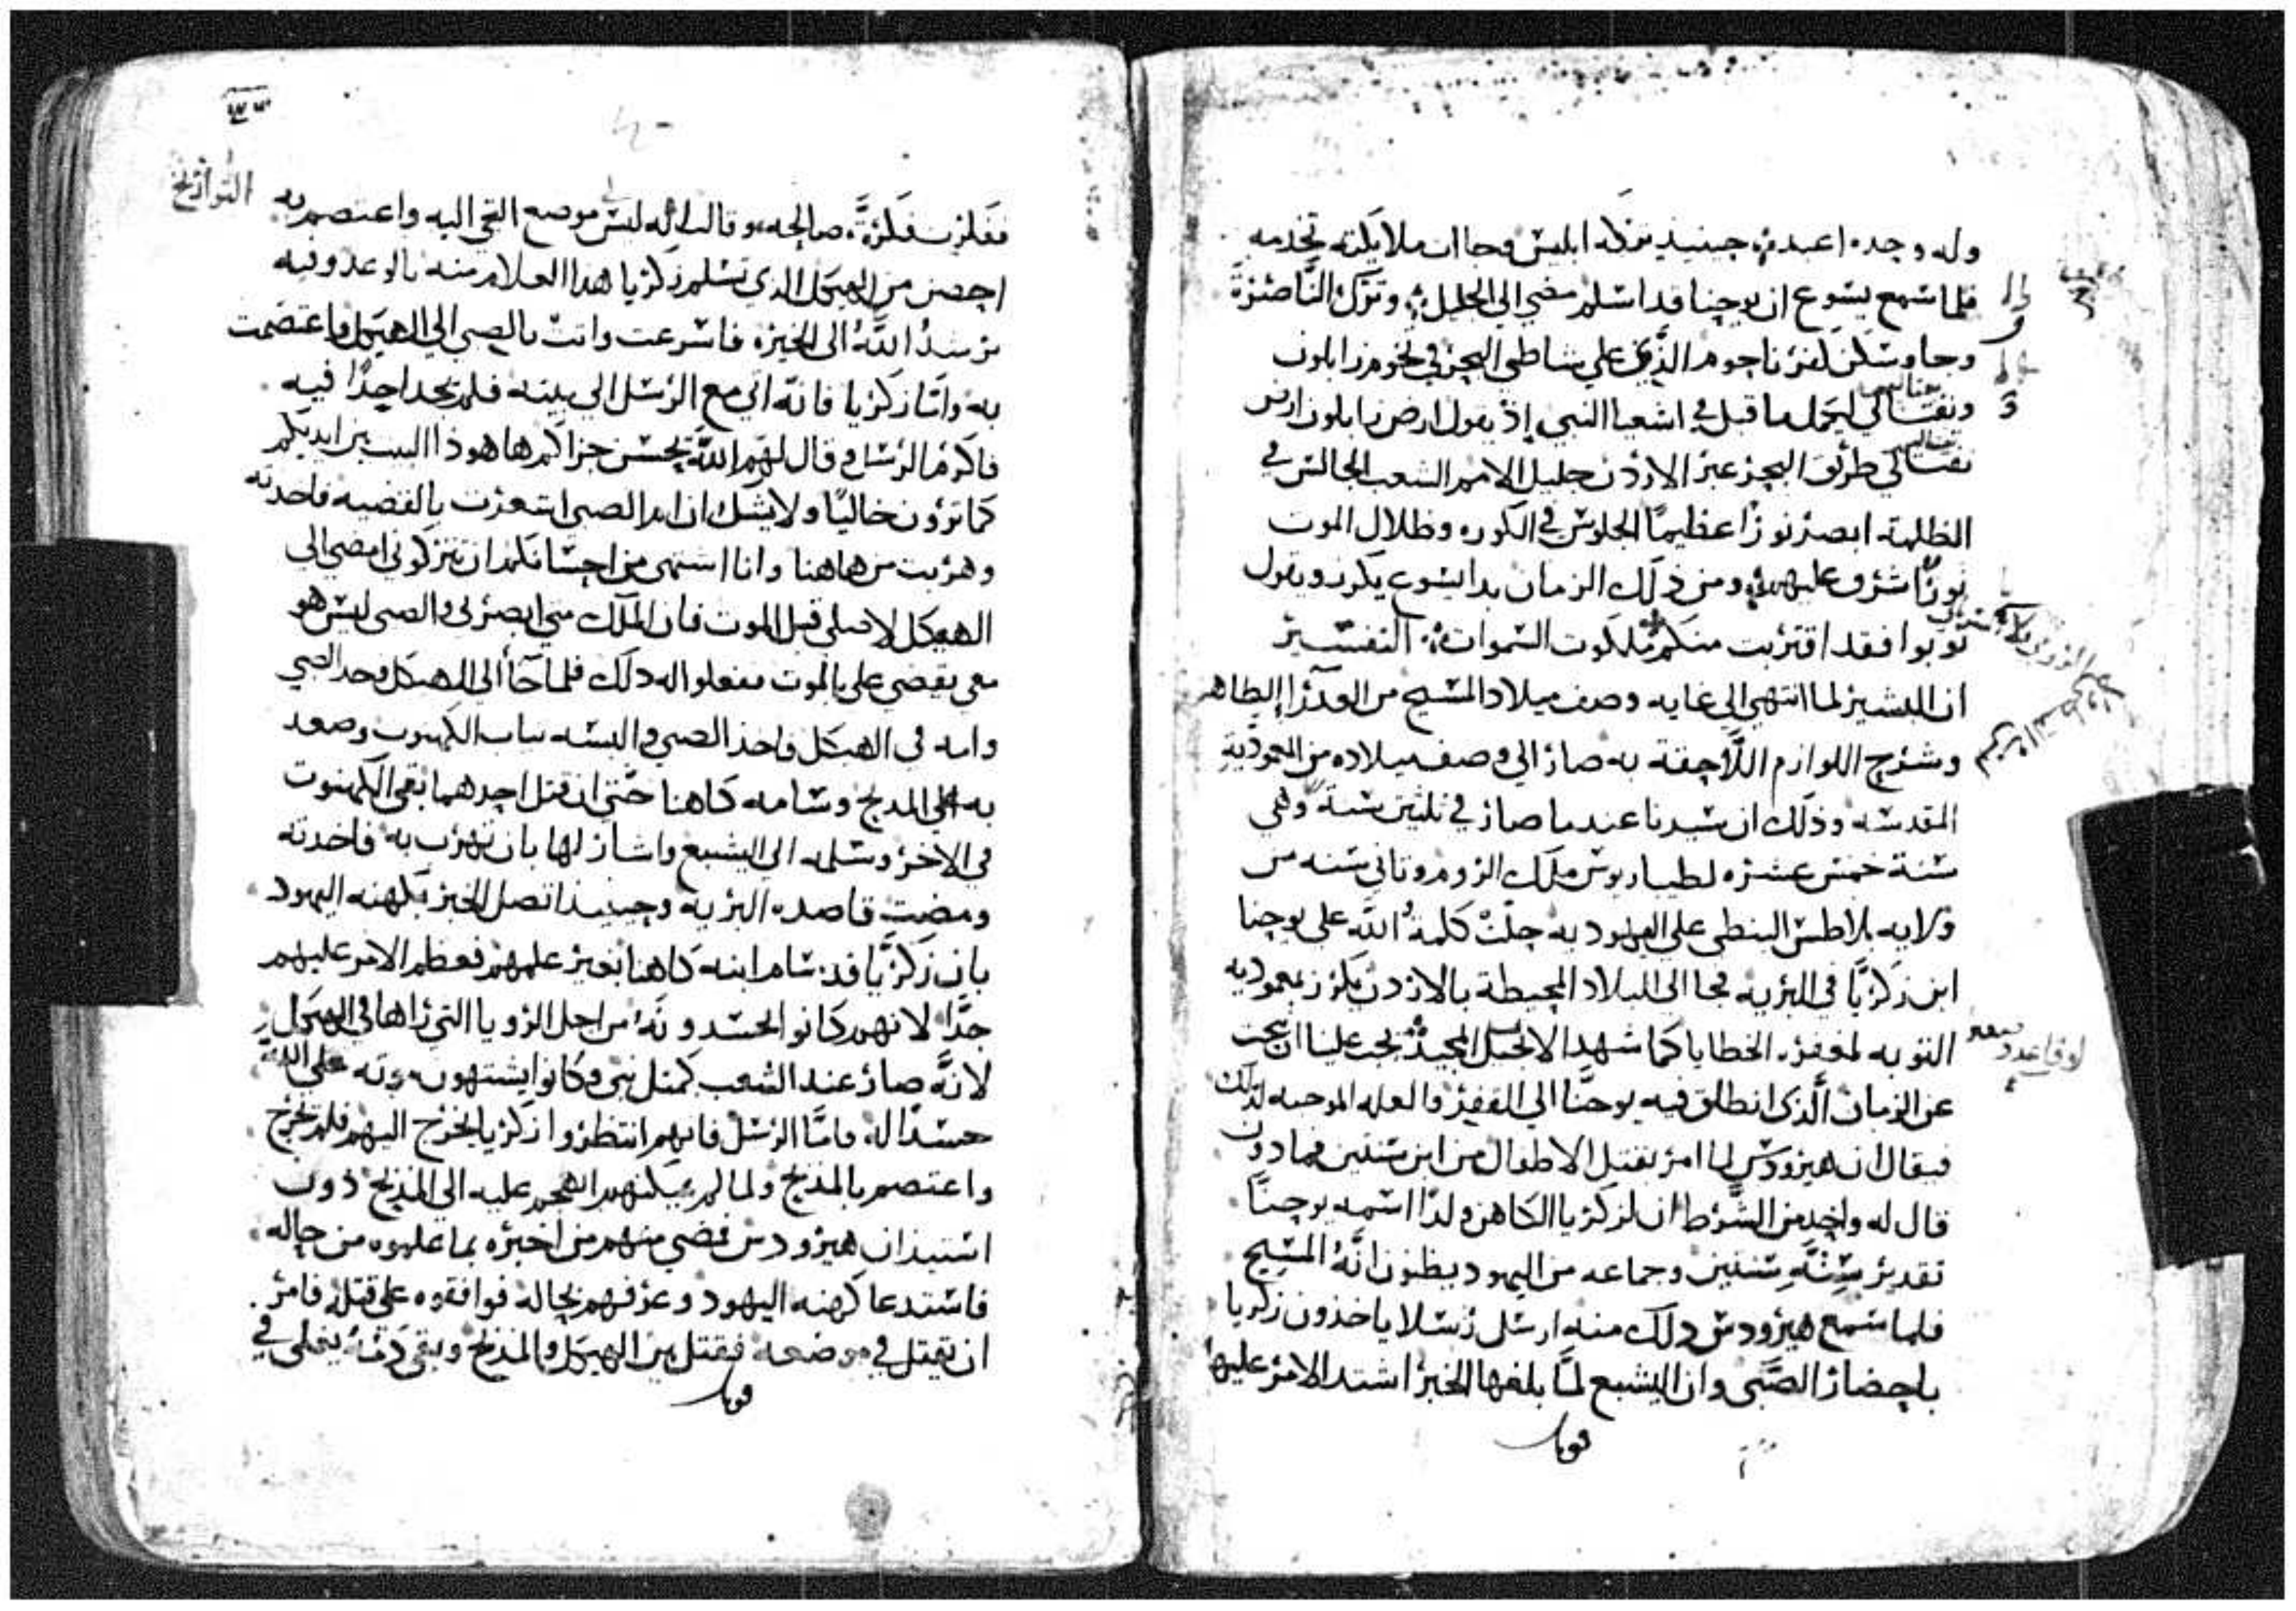 وله وحده اعبد حينيذ تركه ابليس وجاات ملايكته تخدمه
فلما سمع يسوع ان يوحنا قد اسلم مضي الي الجليل وترك الناصرة
وجا وسكن كفرناحوم الذي علي شاطي البحر في تخوم زابلون
ونفتالي ليكمل ما قيل في اشعيا النبي إذ يقول ارض زابلون ارض
نفتالي طريق البحر عبر الاردن جليل الامم الشعب الجالس في
الظلمة ابصر نورًا عظيمًا الجلوس في الكوره وظلال الموت
نورًا شرق عليهم ومن ذلك الزمان بدا يسوع يكرز ويقول
توبوا فقد اقتربت منكم ملكوت السموات التفسير
ان البشير لما انتهي الي غايه وصف ميلاد المسيح من العدرا الطاهره
وشرح اللوازم اللاحقة به صار الي وصف ميلاده من المعموديه
المقدسه وذلك ان سيدنا عند ما صار في ثلثين سنة وهي
سنة خمس عشره لطيباريوس ملك الروم وثاني سنه من
ولايه بلاطس البنطي علي اليهوديه حلت كلمة الله علي يوحنا
ابن زكريا في البريه فجا الي البلاد المحيطة بالاردن يكرز بمعموديه
التوبه لمغفره الخطايا كما شهد الانجيل المجيد يجب علينا ان نبحث
عن الزمان الذى انطلق فيه يوحنا الي القفر والعله الموجبه لذلك
فيقال ان هيرودس لما امر بقتل الاطفال من ابن سنتين فما دون
قال له واحد من الشرط ان لزكريا الكاهن ولدًا اسمه يوحنا
تقدير سنه سنتين وجماعه من اليهود يظنون انه المسيح
فلما سمع هيرودس ذلك منه ارسل رسلا ياخذون زكريا
باحضار الصبى وان اليشبع لما بلغها الخبر اشتد الامر عليها
التواريخ
ففكرت فكرة صالحه وقالت انه ليس لي موضع التجي اليه واعتصم به
احصن من الهيكل الدي تسلم زكريا هدا الغلام منه بالوعد وفيه
يرسد الله الى الخيره فاسرعت واتت بالصبي الي الهيكل واعتصمت
به واما زكريا فانه اتي مع الرسل الي بيته فلم يجد احدًا فيه
فاكرم الرسل وقال لهم الله يحسن جزاكم ها هوذا البيت بين ايديكم
كما ترون خاليًا ولا يشك ان ام الصبي استعرت بالقضيه فاخدته
وهربت من هاهنا وانا اشتهى من احسانكم ان تتركوني امضي الي
الهيكل لاصلي قبل الموت فان الملك متي ابصرني والصبي ليس هو
معي يقضي علي بالموت ففعلوا له دلك فلما جآ الي الهيكل وجد الصبي
وامه في الهيكل فاخذ الصبي والبسه ثياب الكهنوت وصعد
به الي المدبح وسامه كاهنا حتي ان قتل احدهما بقي الكهنوت
في الاخر وسلمه الي اليشبع واشار لها بان تهرب به فاخدته
ومضت قاصده البريه وحينيد اتصل الخبر بكهنه اليهود
بان زكريا قد سام ابنه كاهنا بغير علمهم فعظم الامر عليهم
جدًا لانهم كانوا يحسدونه من اجل الرويا التي راها في الهيكل
لانه صار عند الشعب كمثل نبي وكانوا يشتهون موته
حسدًا له فاما الرسل فانهم انتظروا زكريا ليخرج اليهم فلم يخرج
واعتصم بالمدبح ولما لم يمكنهم الهجم عليه الى المذبح دون
استيذان هيرودس فمضي منهم من اخبره بما علموه من حاله
فاستدعا كهنه اليهود وعرفهم بحاله فوافقوه علي قتله فامر
ان يقتل في موضعه فقتل بين الهيكل والمذبح وبقي دمه يغلي في